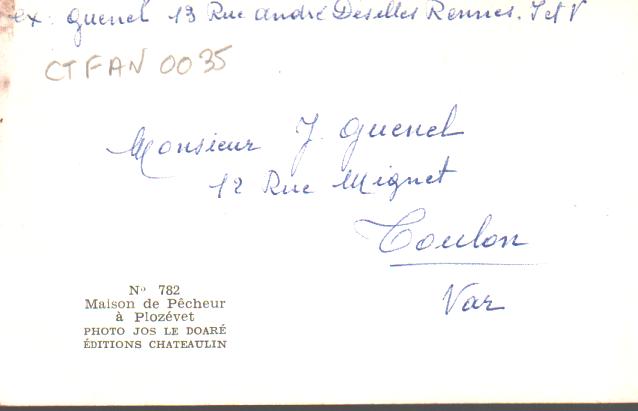 ex: Guenel 13 Rue André Désilles Rennes. I et V
CTFAN 0035
Monsieur J. Guenel
12 Rue Mignet
Toulon
Var
No 782
Maison de Pêcheur
à Plozévet
PHOTO JOS LE DOARÉ
ÉDITIONS CHATEAULIN